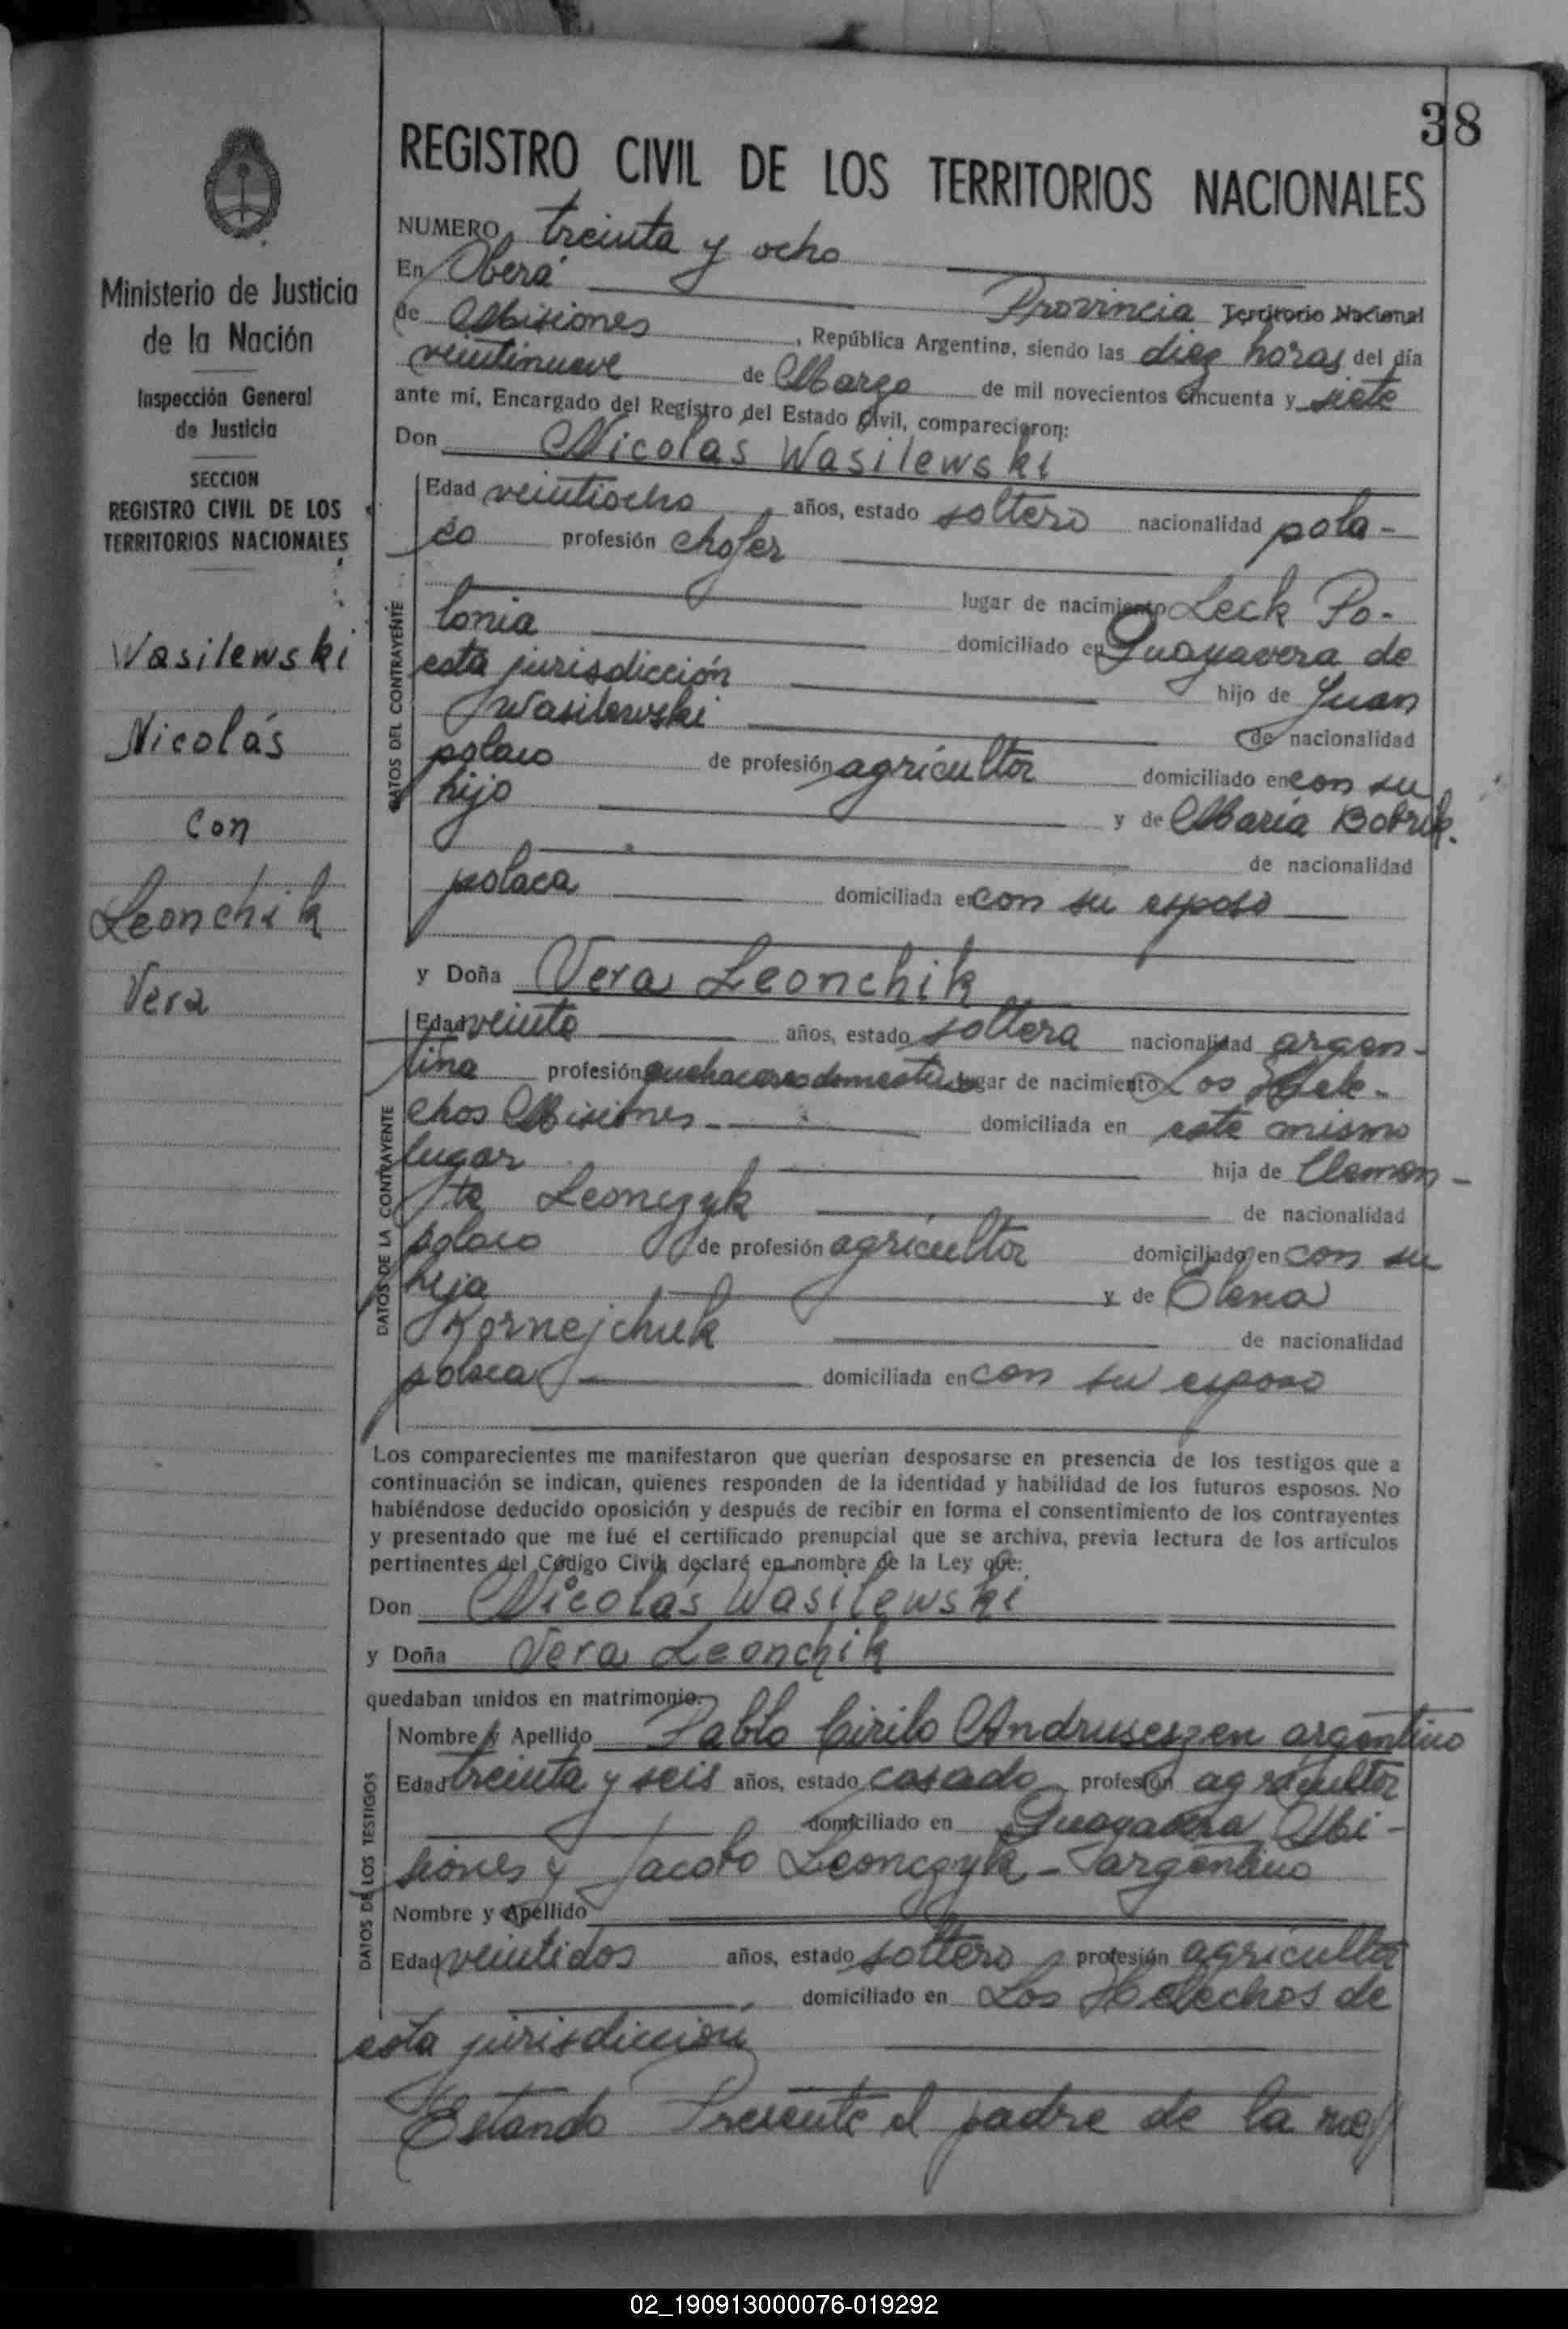 38
REGISTRO CIVIL DE LOS TERRITORIOS NACIONALES
Ministerio de Justicia
de la Nación
Inspección General
de Justicia
SECCION
REGISTRO CIVIL DE LOS
TERRITORIOS NACIONALES
Wasilewski
Nicolás
con
Leonchik
Vera
NUMERO treinta y ocho
En Oberá Provincia Territorio Nacional
de Misiones, República Argentina, siendo las diez horas del día
veintinueve de Marzo de mil novecientos cincuenta y siete
ante mí, Encargado del Registro del Estado Civil, comparecieron:
Don Nicolás Wasilewski
DATOS DEL CONTRAYENTE
Edad veintiocho años, estado soltero nacionalidad pola-
co profesión chofer
lugar de nacimiento Leck Po-
lonia domiciliado en Guayavera de
esta jurisdicción hijo de Juan
Wasilewski de nacionalidad
polaco de profesión agricultor domiciliado en con su
hijo y de María Bobrik.
de nacionalidad
polaca domiciliada en con su esposo
y Doña Vera Leonchik
DATOS DE LA CONTRAYENTE
Edad veinte años, estado soltera nacionalidad argen-
tina profesión quehaceres domesticos lugar de nacimiento Los Hele-
chos Misiones domiciliada en este mismo
lugar hija de Clemen-
te Leonczyk de nacionalidad
polaco de profesión agricultor domiciliado en con su
hija y de Elena
Kornejchuk de nacionalidad
polaca domiciliada en con su esposo
Los comparecientes me manifestaron que querían desposarse en presencia de los testigos que a
continuación se indican, quienes responden de la identidad y habilidad de los futuros esposos. No
habiéndose deducido oposición y después de recibir en forma el consentimiento de los contrayentes
y presentado que me fué el certificado prenupcial que se archiva, previa lectura de los artículos
pertinentes del Código Civil, declaré en nombre de la Ley que:
Don Nicolás Wasilewski
y Doña Vera Leonchik
quedaban unidos en matrimonio.
DATOS DE LOS TESTIGOS
Nombre y Apellido Pablo Cirilo argentino
Edad treinta y seis años, estado casado profesión agricultor
domiciliado en Guayavera Mi-
siones y Jacobo Leonczyk - argentino
Nombre y Apellido
Edad veintidos años, estado soltero profesión agricultor
domiciliado en Los Helechos de
esta jurisdicción
Estando Presente el padre de la
02_190913000076-019292